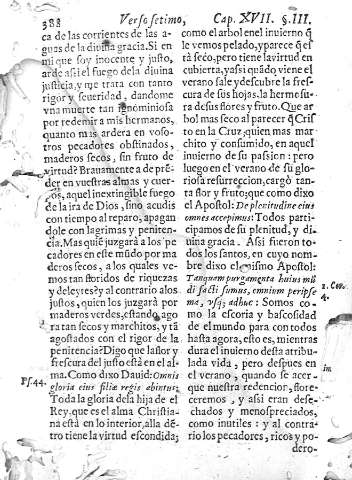 388 Verso setimo, Cap. XVII. §. III.
ca de las corrientes de las a-
guas de la diuina gracia. Si en
mi que soy inocente y justo,
arde assi el fuego de la diuina
justicia, y me trata con tanto
rigor y seueridad, dandome
vna muerte tan ignominiosa
por redemir a mis hermanos,
quanto mas ardera en voso-
tros pecadores obstinados,
maderos secos, sin fruto de
virtud? Brauamente a de prē-
der en vuestras almas y cuer-
pos, aquel inextinguible fuego
de la ira de Dios, sino acudis
con tiempo al reparo, apagan
dole con lagrimas y peniten-
cia. Mas quiē juzgarà a los pe-
cadores en este mūdo por ma
deros secos, a los quales ve-
mos tan floridos de riquezas
y deleytes? y al contrario a los
justos, quien los juzgarà por
maderos verdes, estando ago
ra tan secos y marchitos, y tā
agostados con el rigor de la
penitencia? Digo que la flor y
frescura del justo està en el al-
ma. Como dixo Dauid: Omnis
Ps. 44. gloria eius filiæ regis abintus;
Toda la gloria desa hija de el
Rey, que es el alma Christia-
na està en lo interior, alla dē-
tro tiene la virtud escondida;
como el arbol en el inuierno q̄
le vemos pelado, y parece q̄ es
tà seco, pero tiene la virtud en
cubierta, y assi quādo viene el
verano sale y descubre la fres-
cura de sus hojas, la hermosu-
ra de sus flores y fruto. Que ar
bol mas seco al parecer q̄ Cris
to en la Cruz, quien mas mar
chito y consumido, en aquel
inuierno de su passion: pero
luego en el verano de su glo-
riosa resurreccion, cargò tan-
ta flor y fruto; que como dixo
el Apostol: De plenitudine eius
omnes accepimus: Todos parti-
cipamos de su plenitud, y di-
uina gracia. Assi fueron to-
dos los santos, en cuyo nom-
bre dixo el mismo Apostol:
Tanquam purgamenta huius mū
di facti sumus, omnium peripse-
ma, vsq; adhuc: Somos co- 2. Con.
mo la escoria y bascosidad 4.
de el mundo para con todos
hasta agora, esto es, mientras
dura el inuierno desta atribu-
lada vida, pero despues en
el verano, quando se acer-
que nuestra redencion, flore-
ceremos, y assi eran dese-
chados y menospreciados,
como inutiles: y al contra-
rio los pecadores, ricos y po-
dero-